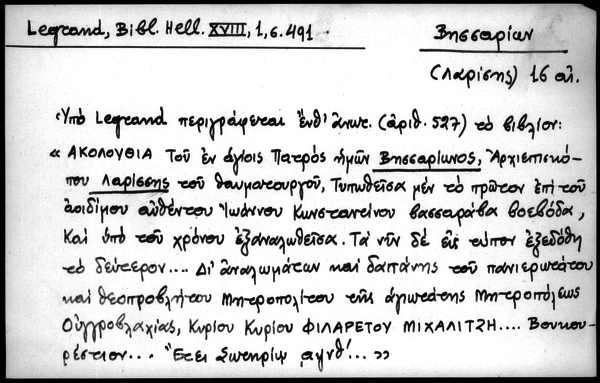 Legrand, Bibl. Hell. XVIII, 1, σ. 491
Βησσαρίων
(Λαρίσης) 16 αἰ.
Ὑπὸ Legrand περιγράφεται ἔνθ' ἀνωτ. (ἀριθ. 527) τὸ βιβλίον:
« ΑΚΟΛΟΥΘΙΑ Τοῦ ἐν ἁγίοις Πατρὸς ἡμῶν Βησσαρίωνος, Ἀρχιεπισκό-
που Λαρίσσης τοῦ θαυματουργοῦ, Τυπωθεῖσα μὲν τὸ πρῶτον ἐπὶ τοῦ
ἀοιδίμου αὐθέντου Ἰωάννου Κωνσταντίνου Βασσαράβα βοεβόδα,
Καὶ ὑπὸ τοῦ χρόνου ἐξαναλωθεῖσα. Τὰ νῦν δὲ εἰς τύπον ἐξεδόθη
τὸ δεύτερον.... Δι' ἀναλωμάτων καὶ δαπάνης τοῦ πανιερωτάτου
καὶ θεοπροβλήτου Μητροπολίτου τῆς ἁγιωτάτης Μητροπόλεως
Οὑγγροβλαχίας, Κυρίου Κυρίου ΦΙΛΑΡΕΤΟΥ ΜΙΧΑΛΙΤΖΗ.... Βουκου-
ρέστιον... Ἔτει Σωτηρίῳ ͵αψνθ'... »